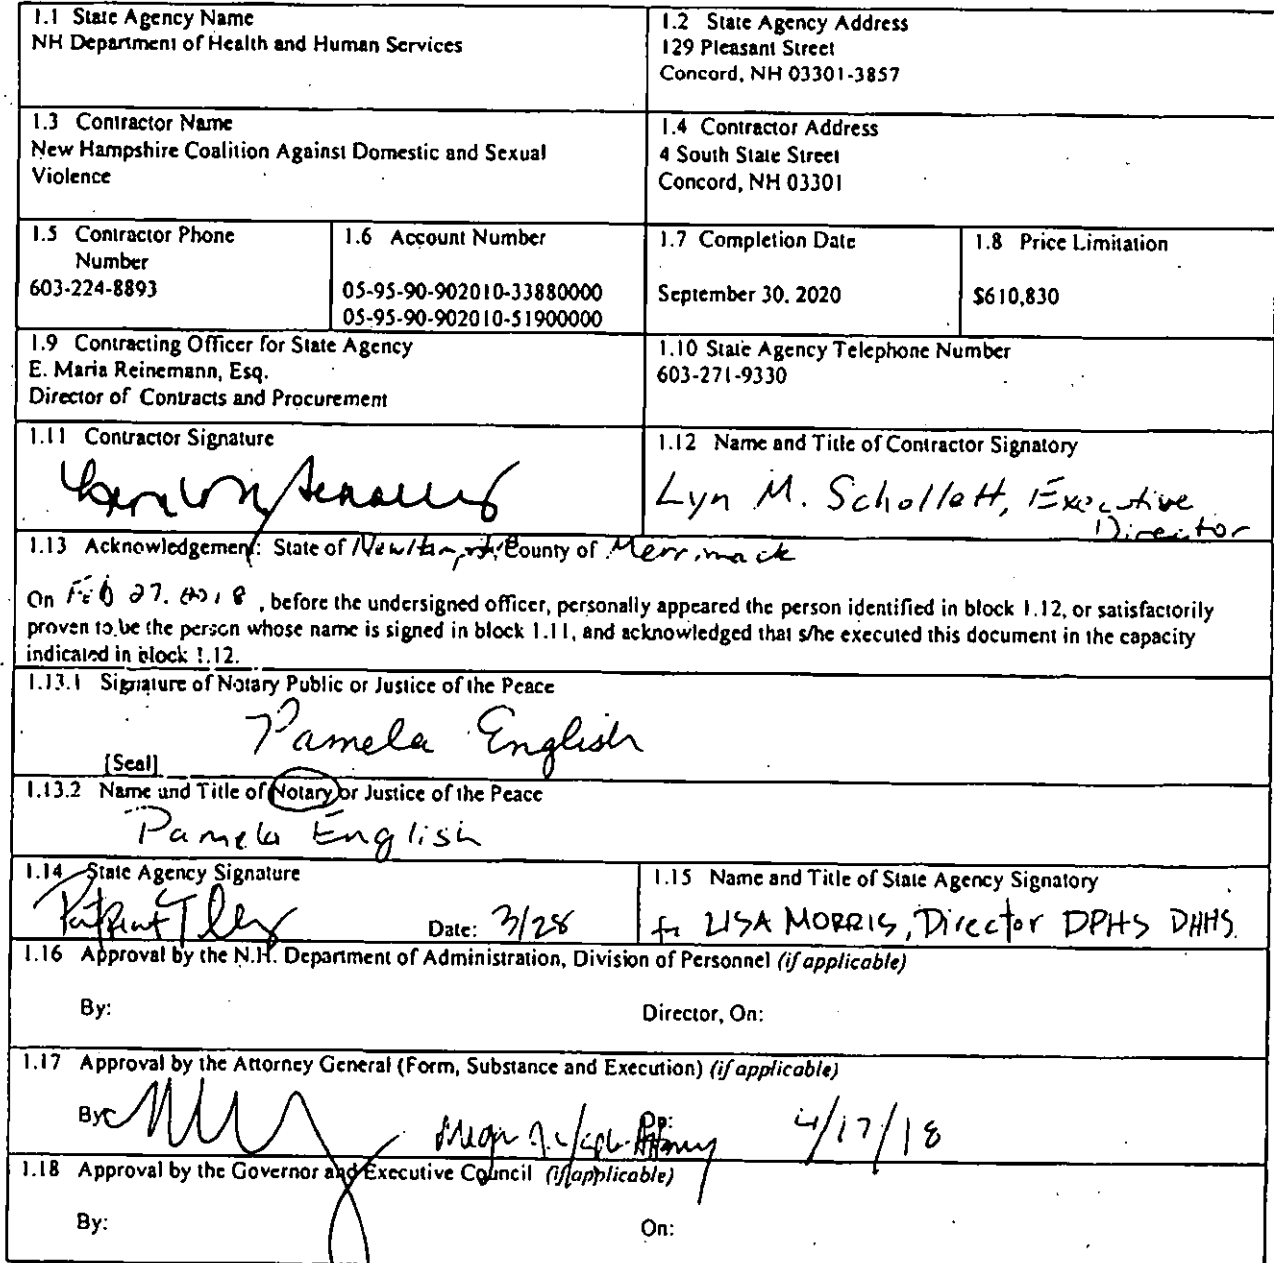 1.1 State Agency Name
NH Department of Health and Human Services
1.2 State Agency Address
129 Pleasant Street
Concord, NH 03301-3857
1.3 Contractor Name
New Hampshire Coalition Against Domestic and Sexual
Violence
1.4 Contractor Address
4 South State Street
Concord, NH 03301
1.5 Contractor Phone
Number
603-224-8893
1.6 Account Number
05-95-90-902010-33880000
05-95-90-902010-51900000
1.7 Completion Date
September 30, 2020
1.8 Price Limitation
$610,830
1.9 Contracting Officer for State Agency
E. Maria Reinemann, Esq.
Director of Contracts and Procurement
1.10 State Agency Telephone Number
603-271-9330
1.11 Contractor Signature
1.12 Name and Title of Contractor Signatory
Lyn M. Schollett, Executive
Director
1.13 Acknowledgement: State of New Hampshire County of Merrimack
On Feb 27, 2018, before the undersigned officer, personally appeared the person identified in block 1.12, or satisfactorily
proven to be the person whose name is signed in block 1.11, and acknowledged that s/he executed this document in the capacity
indicated in block 1.12.
1.13.1 Signature of Notary Public or Justice of the Peace
Pamela English
[Seal]
1.13.2 Name and Title of Notary or Justice of the Peace
Pamela English
1.14 State Agency Signature
Date: 3/28
1.15 Name and Title of State Agency Signatory
for LISA MORRIS, Director DPHS DHHS.
1.16 Approval by the N.H. Department of Administration, Division of Personnel (if applicable)
By:
Director, On:
1.17 Approval by the Attorney General (Form, Substance and Execution) (if applicable)
By:
On: 4/17/18
1.18 Approval by the Governor and Executive Council (if applicable)
By:
On: